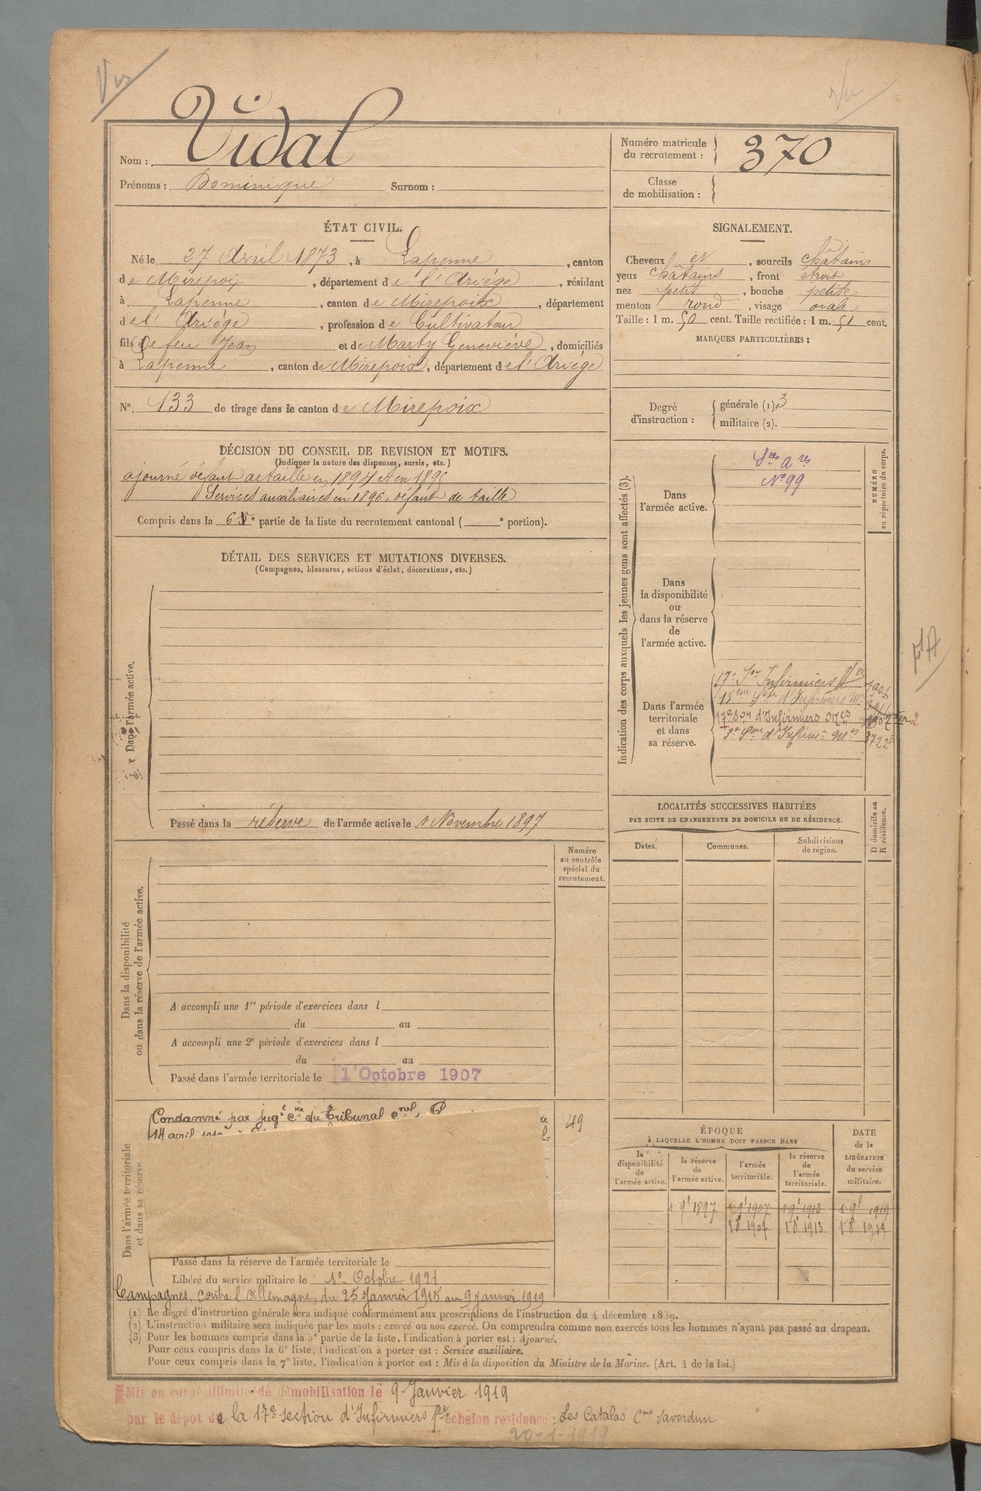 Vu
Vu
Nom : Vidal
Prénoms : Dominique Surnom :
Numéro matricule du recrutement : 370
Classe de mobilisation :
ÉTAT CIVIL.
Né le 27 Avril 1873, à Lapenne, canton
de Mirepoix, département de l'Ariège, résidant
à Lapenne, canton de Mirepoix, département
de l'Ariège, profession de Cultivateur
fils de feu Jean et de Marty Geneviève, domiciliés
à Lapenne, canton de Mirepoix, département de l'Ariège
N° 133 de tirage dans le canton de Mirepoix
SIGNALEMENT.
Cheveux et, sourcils châtains
yeux châtains, front étroit
nez petit, bouche petite
menton rond, visage ovale
Taille : 1 m. 50 cent. Taille rectifiée : 1 m. 51 cent.
MARQUES PARTICULIÈRES :
Degré d'instruction : générale (1) 3
militaire (2).
DÉCISION DU CONSEIL DE REVISION ET MOTIFS.
(Indiquer la nature des dispenses, sursis, etc.)
ajourné défaut de taille en 1894 et en 1895
Services auxiliaires en 1896, défaut de taille
Compris dans la 6e partie de la liste du recrutement cantonal ( e portion).
DÉTAIL DES SERVICES ET MUTATIONS DIVERSES.
(Campagnes, blessures, actions d'éclat, décorations, etc.)
Dans l'armée active.
Passé dans la réserve de l'armée active le 1 Novembre 1897
Indication des corps auxquels les jeunes gens sont affectés (3).
NUMÉRO au répertoire du corps.
Dans l'armée active.
Sces ares
N° 99
Dans la disponibilité ou dans la réserve de l'armée active.
Dans l'armée territoriale et dans sa réserve.
17e Son Infirmiers
17e Son d'Infirmiers
LOCALITÉS SUCCESSIVES HABITÉES
PAR SUITE DE CHANGEMENTS DE DOMICILE OU DE RÉSIDENCE.
Dates.
Communes.
Subdivisions de région.
D domicile ou R résidence.
Dans la disponibilité ou dans la réserve de l'armée active.
Numéro au contrôle spécial du recrutement.
A accompli une 1re période d'exercices dans l
du au
A accompli une 2e période d'exercices dans l
du au
Passé dans l'armée territoriale le 1 Octobre 1907
Dans l'armée territoriale et dans sa réserve
Condamné par jugt du Tribunal
14 avril
49
Passé dans la réserve de l'armée territoriale le
Libéré du service militaire le 1er Octobre 1921
Campagnes contre l'Allemagne, du 25 Janvier 1915 au 9 janvier 1919
ÉPOQUE
À LAQUELLE L'HOMME DOIT PASSER DANS
DATE de la LIBÉRATION du service militaire.
la disponibilité de l'armée active.
la réserve de l'armée active.
l'armée territoriale.
la réserve de l'armée territoriale.
1 9b 1897 1 9b 1907 1 9b 1913 1 9b 1919
1 8b 1907 1 8b 1913 1 8b 1919
(1) Le degré d'instruction générale sera indiqué conformément aux prescriptions de l'instruction du 4 décembre 1889.
(2) L'instruction militaire sera indiquée par les mots : exercé ou non exercé. On comprendra comme non exercés tous les hommes n'ayant pas passé au drapeau.
(3) Pour les hommes compris dans la 5e partie de la liste, l'indication à porter est : Ajourné.
Pour ceux compris dans la 6e liste, l'indication à porter est : Service auxiliaire.
Pour ceux compris dans la 7e liste, l'indication à porter est : Mis à la disposition du Ministre de la Marine. (Art. 4 de la loi.)
Mis en congé illimité de démobilisation le 9 Janvier 1919
par le dépot de la 17e section d'Infirmiers échelon résidence : Les Catalas Cne Saverdun
20-1-1919